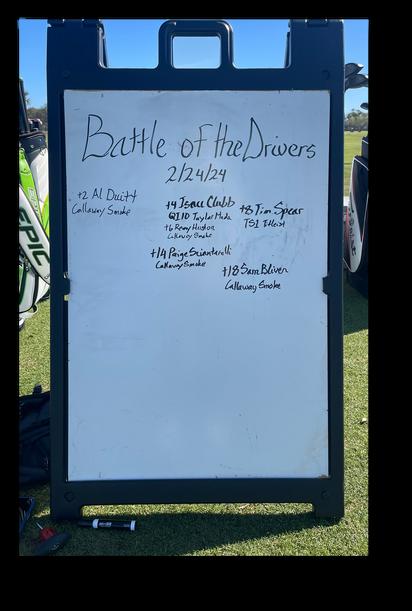 Battle of the Drivers
2/24/24
+2 Al Duitt
Callaway Smoke
+4 Isaac Clubb
QI10 Taylor Made
+6 Remy Huston
Callaway Smoke
+8 Tim Spear
TSI Titleist
+14 Paige Sciantarelli
Callaway Smoke
+18 Sam Bliven
Callaway Smoke
EPIC